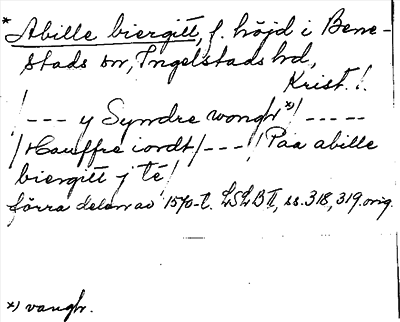 * Abille biergitt, f. höjd i Bene-
stads sn, Ingelstads hd,
Krist. l.
/--- y Syndre wongh *)/-----
/Hauffre iordt/---/Paa abille
biergitt j té/
förra delen av 1570-t. LSLB II, ss. 318, 319. orig.
*) vangh.